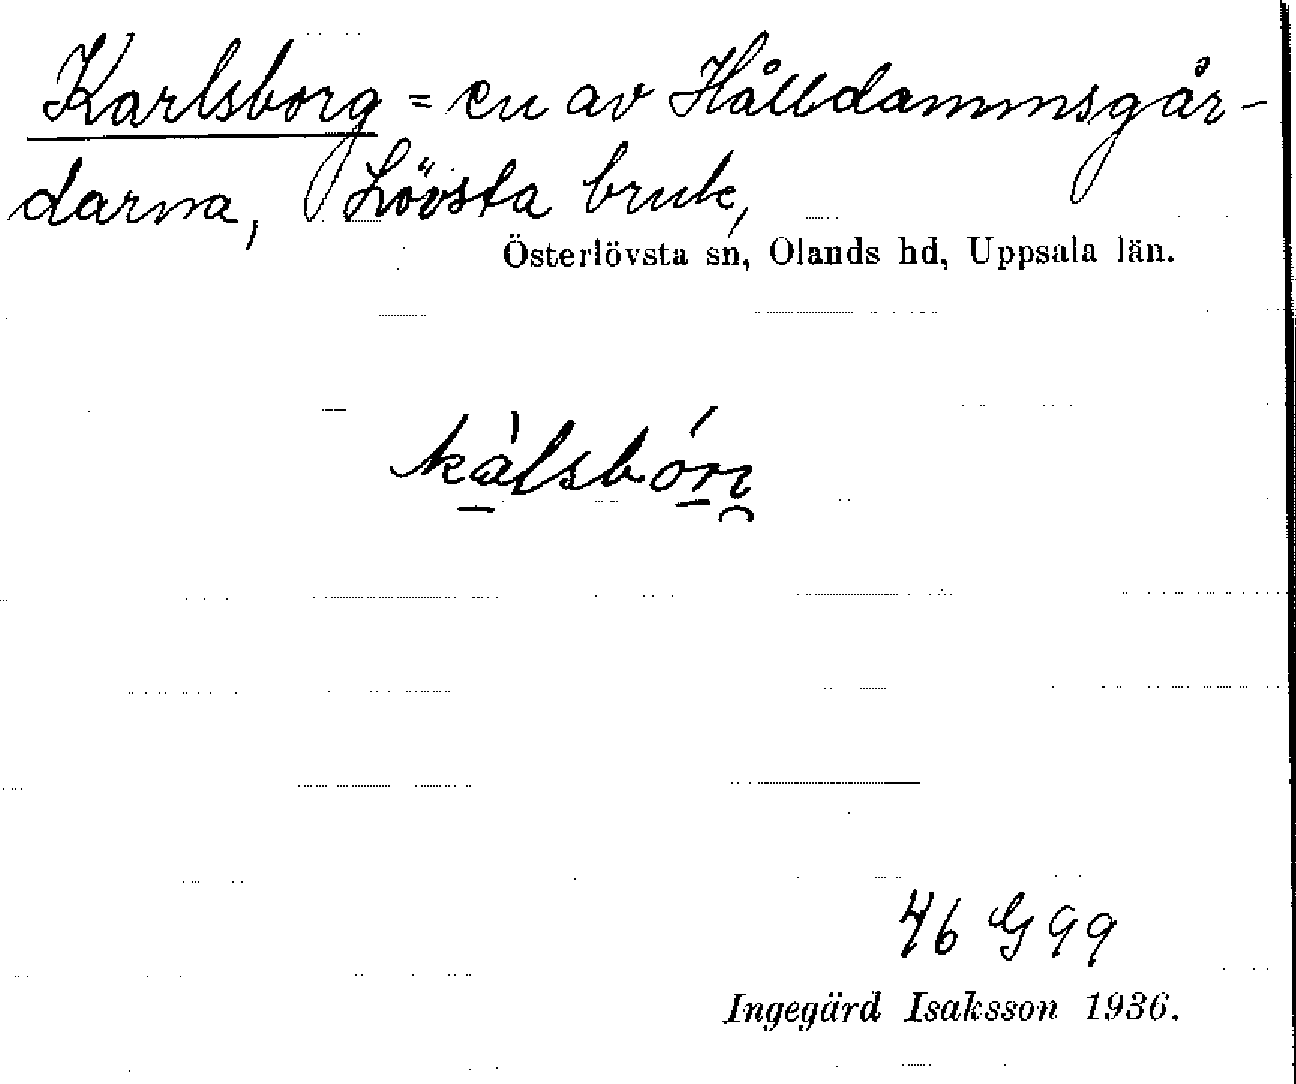 Karlsborg = en av Hålldammsgår-
darna, Lövsta bruk,
Österlövsta sn, Olands hd, Uppsala län.
46 G 99
Ingegärd Isaksson 1936.